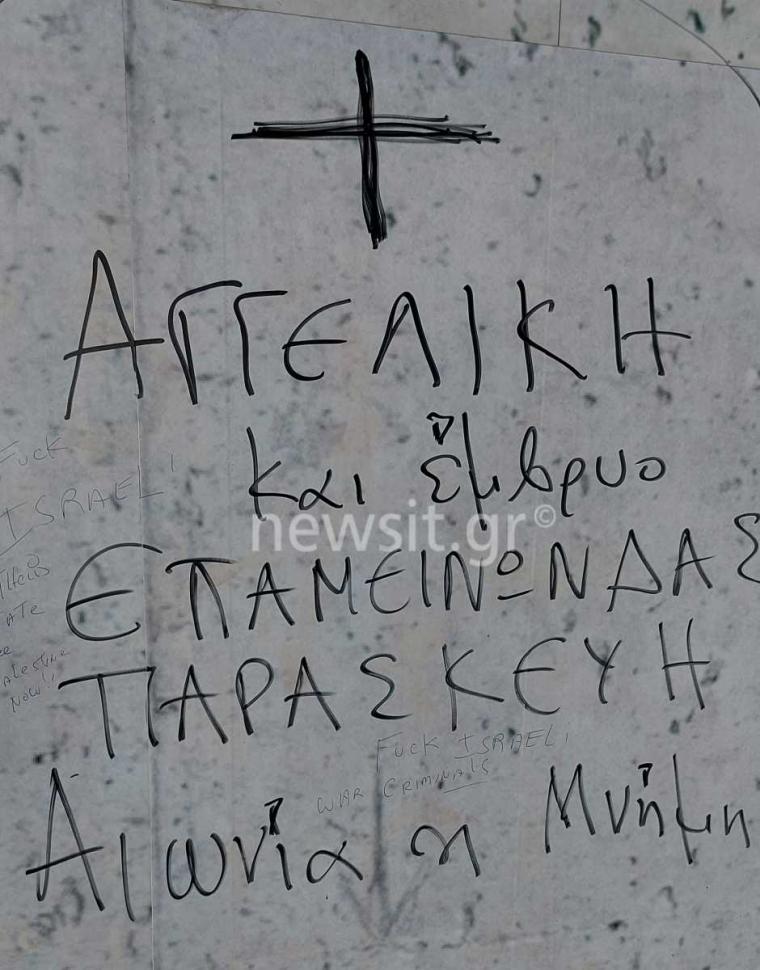 ΑΓΓΕΛΙΚΗ
και έμβρυο
newsit.gr©
ΕΠΑΜΕΙΝΩΝΔΑΣ
ΠΑΡΑΣΚΕΥΗ
Αιωνία η Μνήμη
Fuck
ISRAEL!
Palestine
NOW!!
FUCK ISRAEL,
WAR CRIMINALS